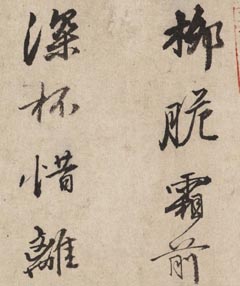 柳脆霜前
深杯惜離